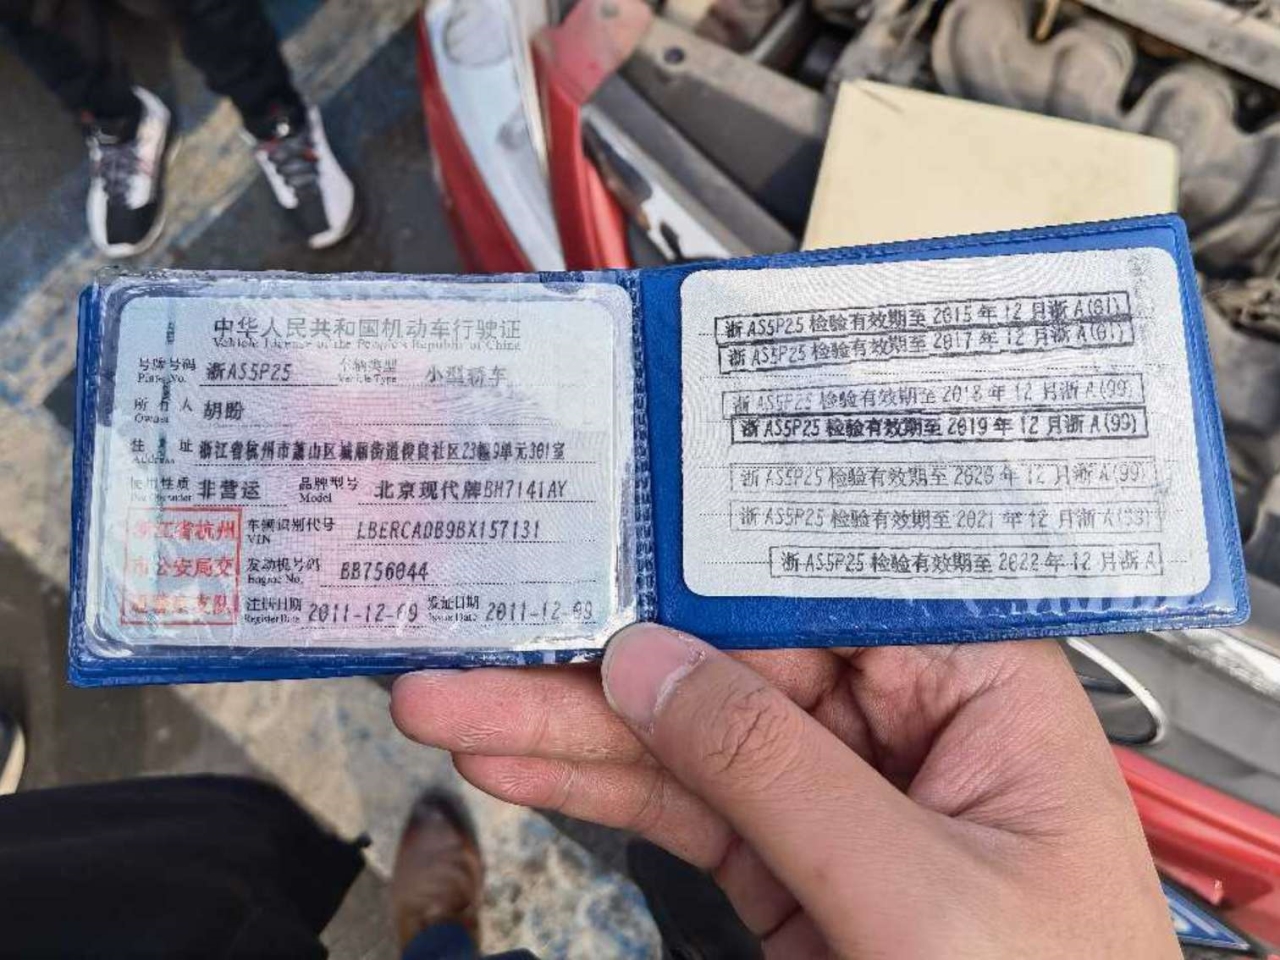 中华人民共和国机动车行驶证
Vehicle License of the People's Republic of China
号牌号码 浙AS5P25 车辆类型 小型轿车
Plate No. Vehicle Type
所有人 胡盼
Owner
住址 浙江省杭州市萧山区城厢街道俊良社区23幢9单元301室
Address
使用性质 非营运 品牌型号 北京现代牌BH7141AY
Use Character Model
浙江省杭州
市公安局交
通警察支队
车辆识别代号 LBERCADB9BX157131
VIN
发动机号码 BB756044
Engine No.
注册日期 2011-12-09 发证日期 2011-12-09
Register Date Issue Date
浙AS5P25 检验有效期至 2015年 12月浙A(01)
浙AS5P25 检验有效期至 2017年 12月浙A(01)
浙AS5P25 检验有效期至 2018年 12月浙A(99)
浙AS5P25 检验有效期至 2019年 12月浙A(99)
浙AS5P25 检验有效期至 2020年 12月浙A(99)
浙AS5P25 检验有效期至 2021年 12月浙A(99)
浙AS5P25 检验有效期至 2022年 12月浙A